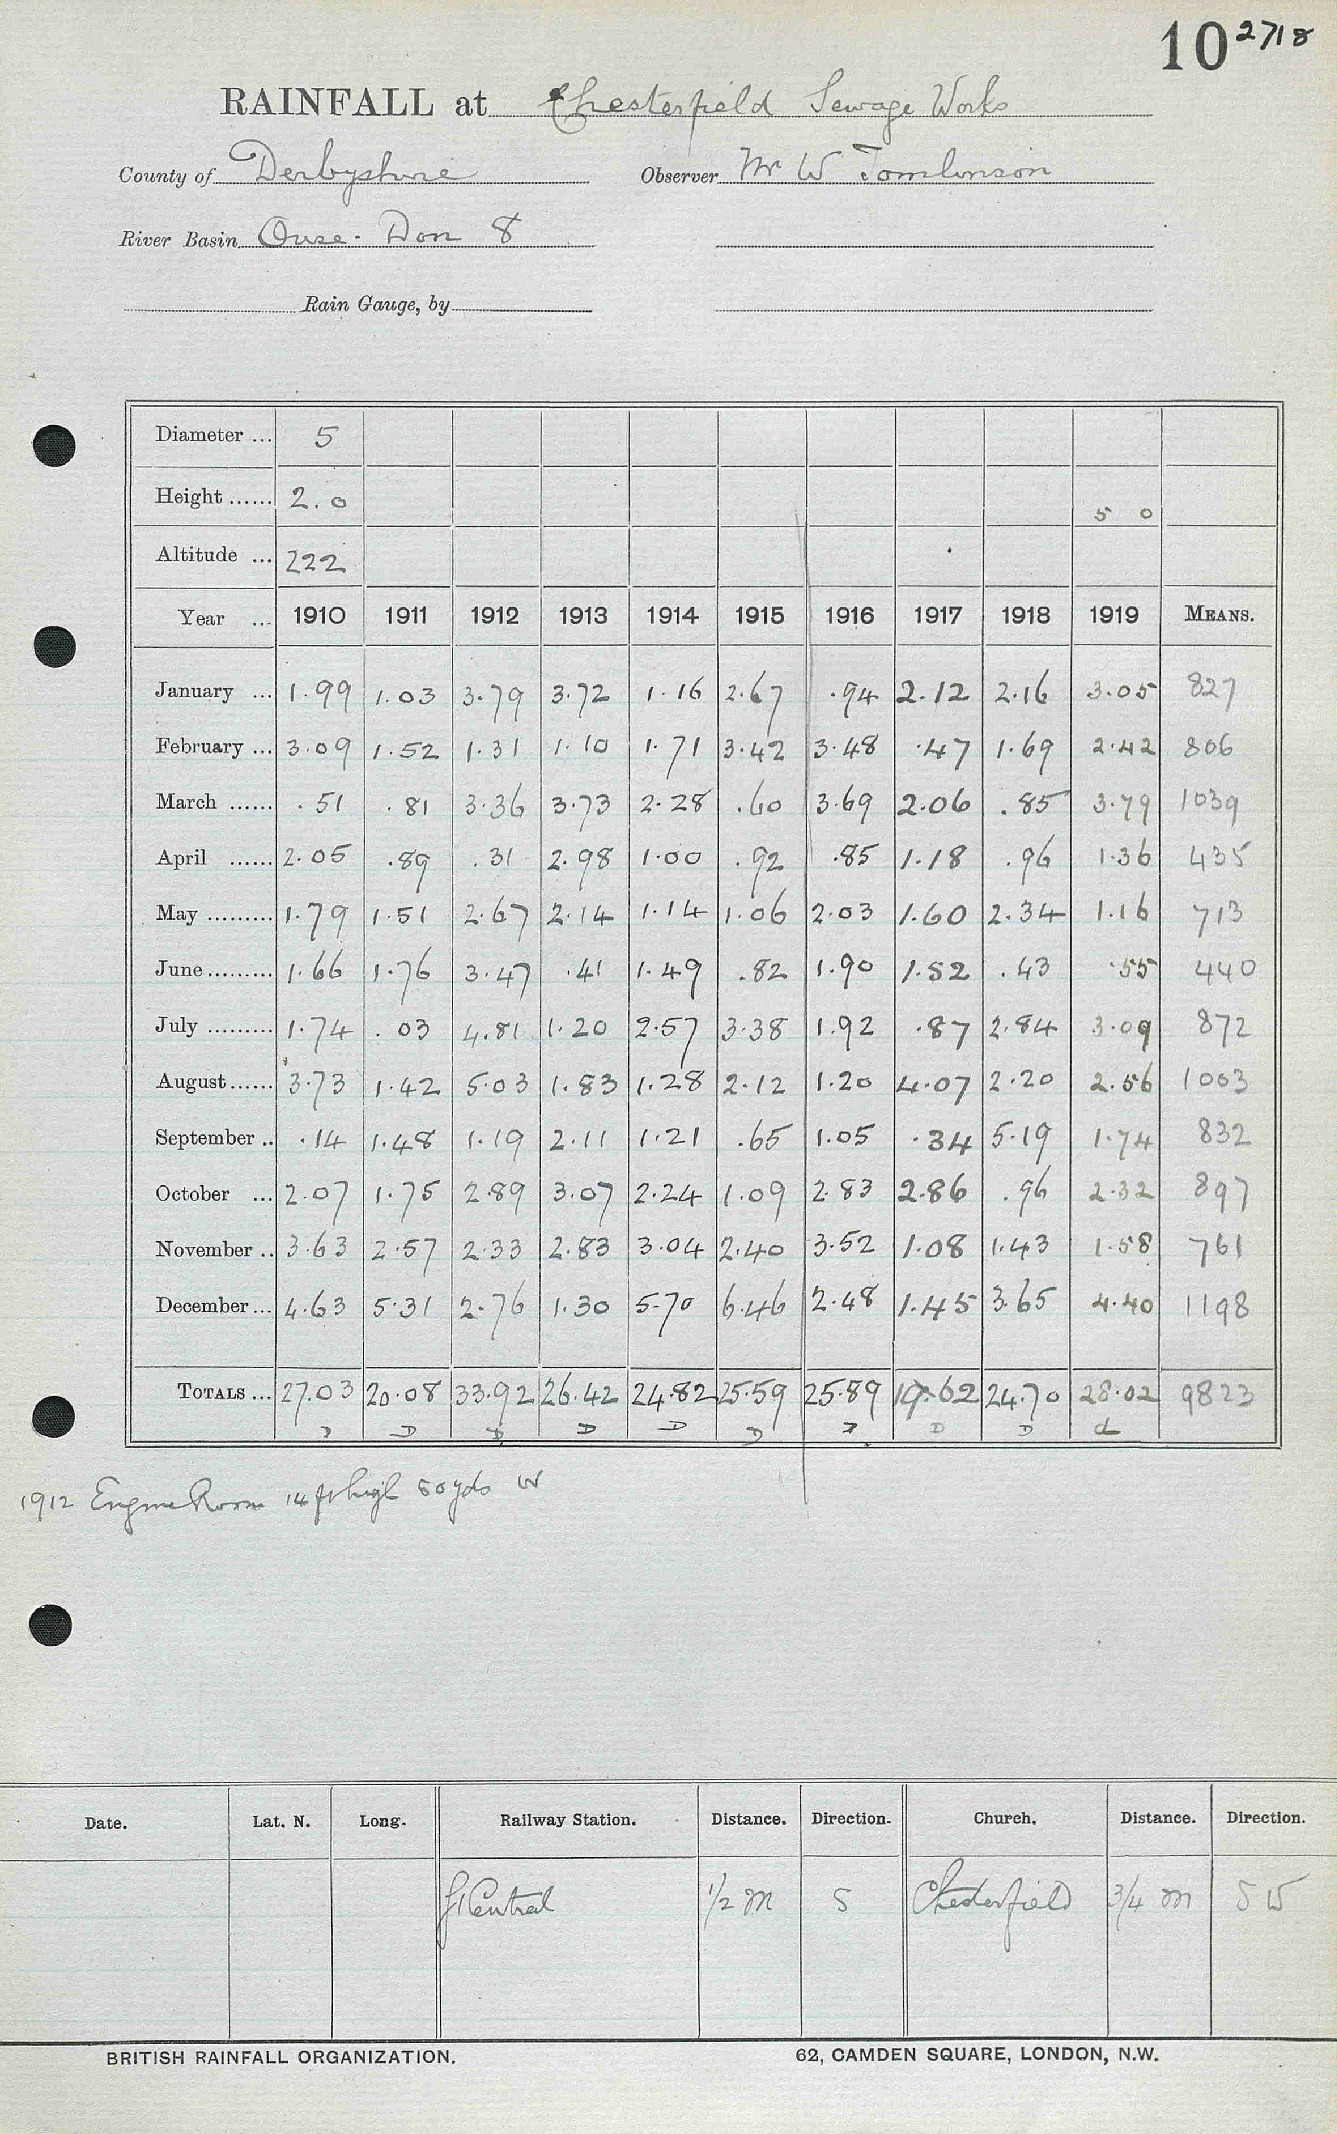 10 2718
RAINFALL at Chesterfield Sewage Works
County of Derbyshire Observer Mr W Tomlinson
River Basin Ouse - Don 8
Rain Gauge, by
Diameter ... 5
Height ...... 2.0 5 0
Altitude ... 222
Year ... 1910 1911 1912 1913 1914 1915 1916 1917 1918 1919 MEANS.
January ... 1.99 1.03 3.79 3.72 1.16 2.67 .94 2.12 2.16 3.05 827
February ... 3.09 1.52 1.31 1.10 1.71 3.42 3.48 .47 1.69 2.42 806
March ...... .51 .81 3.36 3.73 2.28 .60 3.69 2.06 .85 3.79 1039
April ...... 2.05 .89 .31 2.98 1.00 .92 .85 1.18 .96 1.36 435
May ......... 1.79 1.51 2.67 2.14 1.14 1.06 2.03 1.60 2.34 1.16 713
June ......... 1.66 1.76 3.47 .41 1.49 .82 1.90 1.52 .43 .55 440
July ......... 1.74 .03 4.81 1.20 2.57 3.38 1.92 .87 2.84 3.09 872
August ...... 3.73 1.42 5.03 1.83 1.28 2.12 1.20 4.07 2.20 2.56 1003
September .. .14 1.48 1.19 2.11 1.21 .65 1.05 .34 5.19 1.74 832
October ... 2.07 1.75 2.89 3.07 2.24 1.09 2.83 2.86 .96 2.32 897
November .. 3.63 2.57 2.33 2.83 3.04 2.40 3.52 1.08 1.43 1.58 761
December ... 4.63 5.31 2.76 1.30 5.70 6.46 2.48 1.45 3.65 4.40 1198
TOTALS ... 27.03 20.08 33.92 26.42 24.82 25.59 25.89 19.62 24.70 28.02 9823
D D D D D D D D D d
1912 Engine Room 14 ft high 50 yds W
Date. Lat. N. Long. Railway Station. Distance. Direction. Church. Distance. Direction.
Central 1/2 m S Chesterfield 3/4 m S W
BRITISH RAINFALL ORGANIZATION. 62, CAMDEN SQUARE, LONDON, N.W.